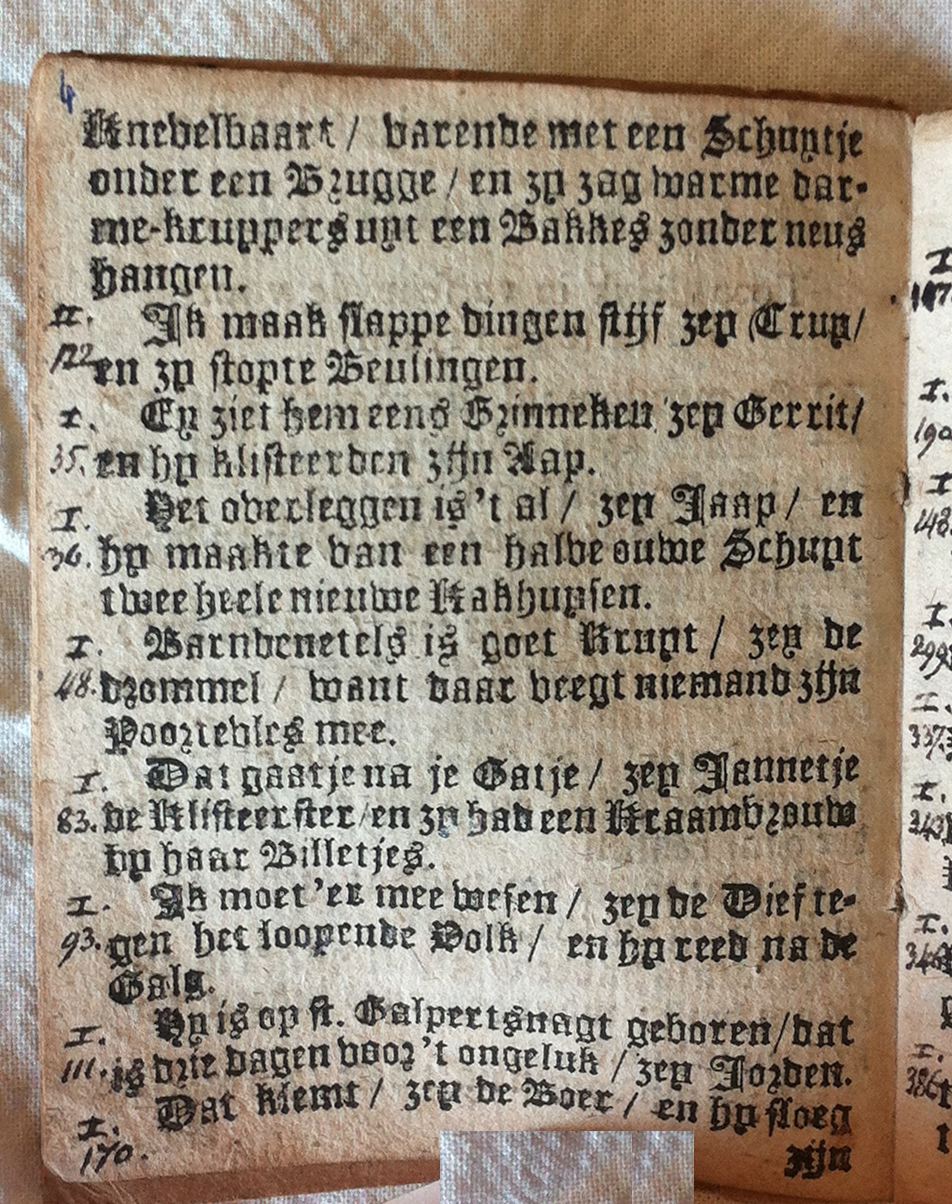 4
Knevelbaart / varende met een Schuytje
onder een Brugge / en zy zag warme dar-
me-kruppers uyt een Bakkes zonder neus
hangen.
II. Ik maak slappe dingen stijf zey Truy/
122. en zy stopte Beulingen.
I. Ey ziet hem eens Grinneken zey Gerrit/
35. en hy klisteerden zijn Aap.
I. Het overleggen is 't al / zey Jaap / en
36. hy maakte van een halve ouwe Schuyt
twee heele nieuwe Kakhuysen.
I. Barndenetels is goet Kruyt / zey de
48. drommel / want daar veegt niemand zijn
Poortevles mee.
I. Dat gaat je na je Gatje / zey Jannetje
83. de Klisteerster / en zy had een Kraamvrouw
by haar Billetjes.
I. Ik moet 'er mee wesen / zey de Dief te-
93. gen het loopende Volk / en hy reed na de
Galg.
I. Hy is op st. Galpertsnagt geboren / dat
111. is drie dagen voor 't ongeluk / zey Jorden.
I. Dat klemt / zey de Boer / en hy sloeg
170. zijn
I.
I.
190
I
148
I
299
I.
337
I.
342
I.
346
I.
386